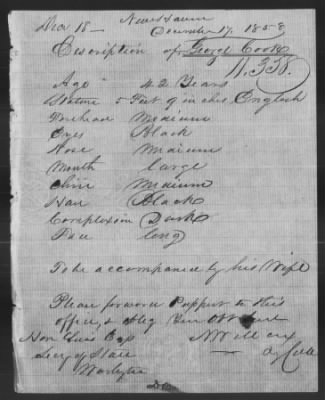 Dec 18 — New Haven
December 17. 1858
Description of George Cooke
11.358.
Age 42 Years
Stature 5 Feet 9 inches English
Forehead Medium
Eyes Black
Nose Medium
Mouth large
Chin Medium
Hair Black
Complexion Dark
Face long
To be accompanied by his Wife
Please forward Passport to this
office, & oblig
Hon Lewis Cass
Secy of State